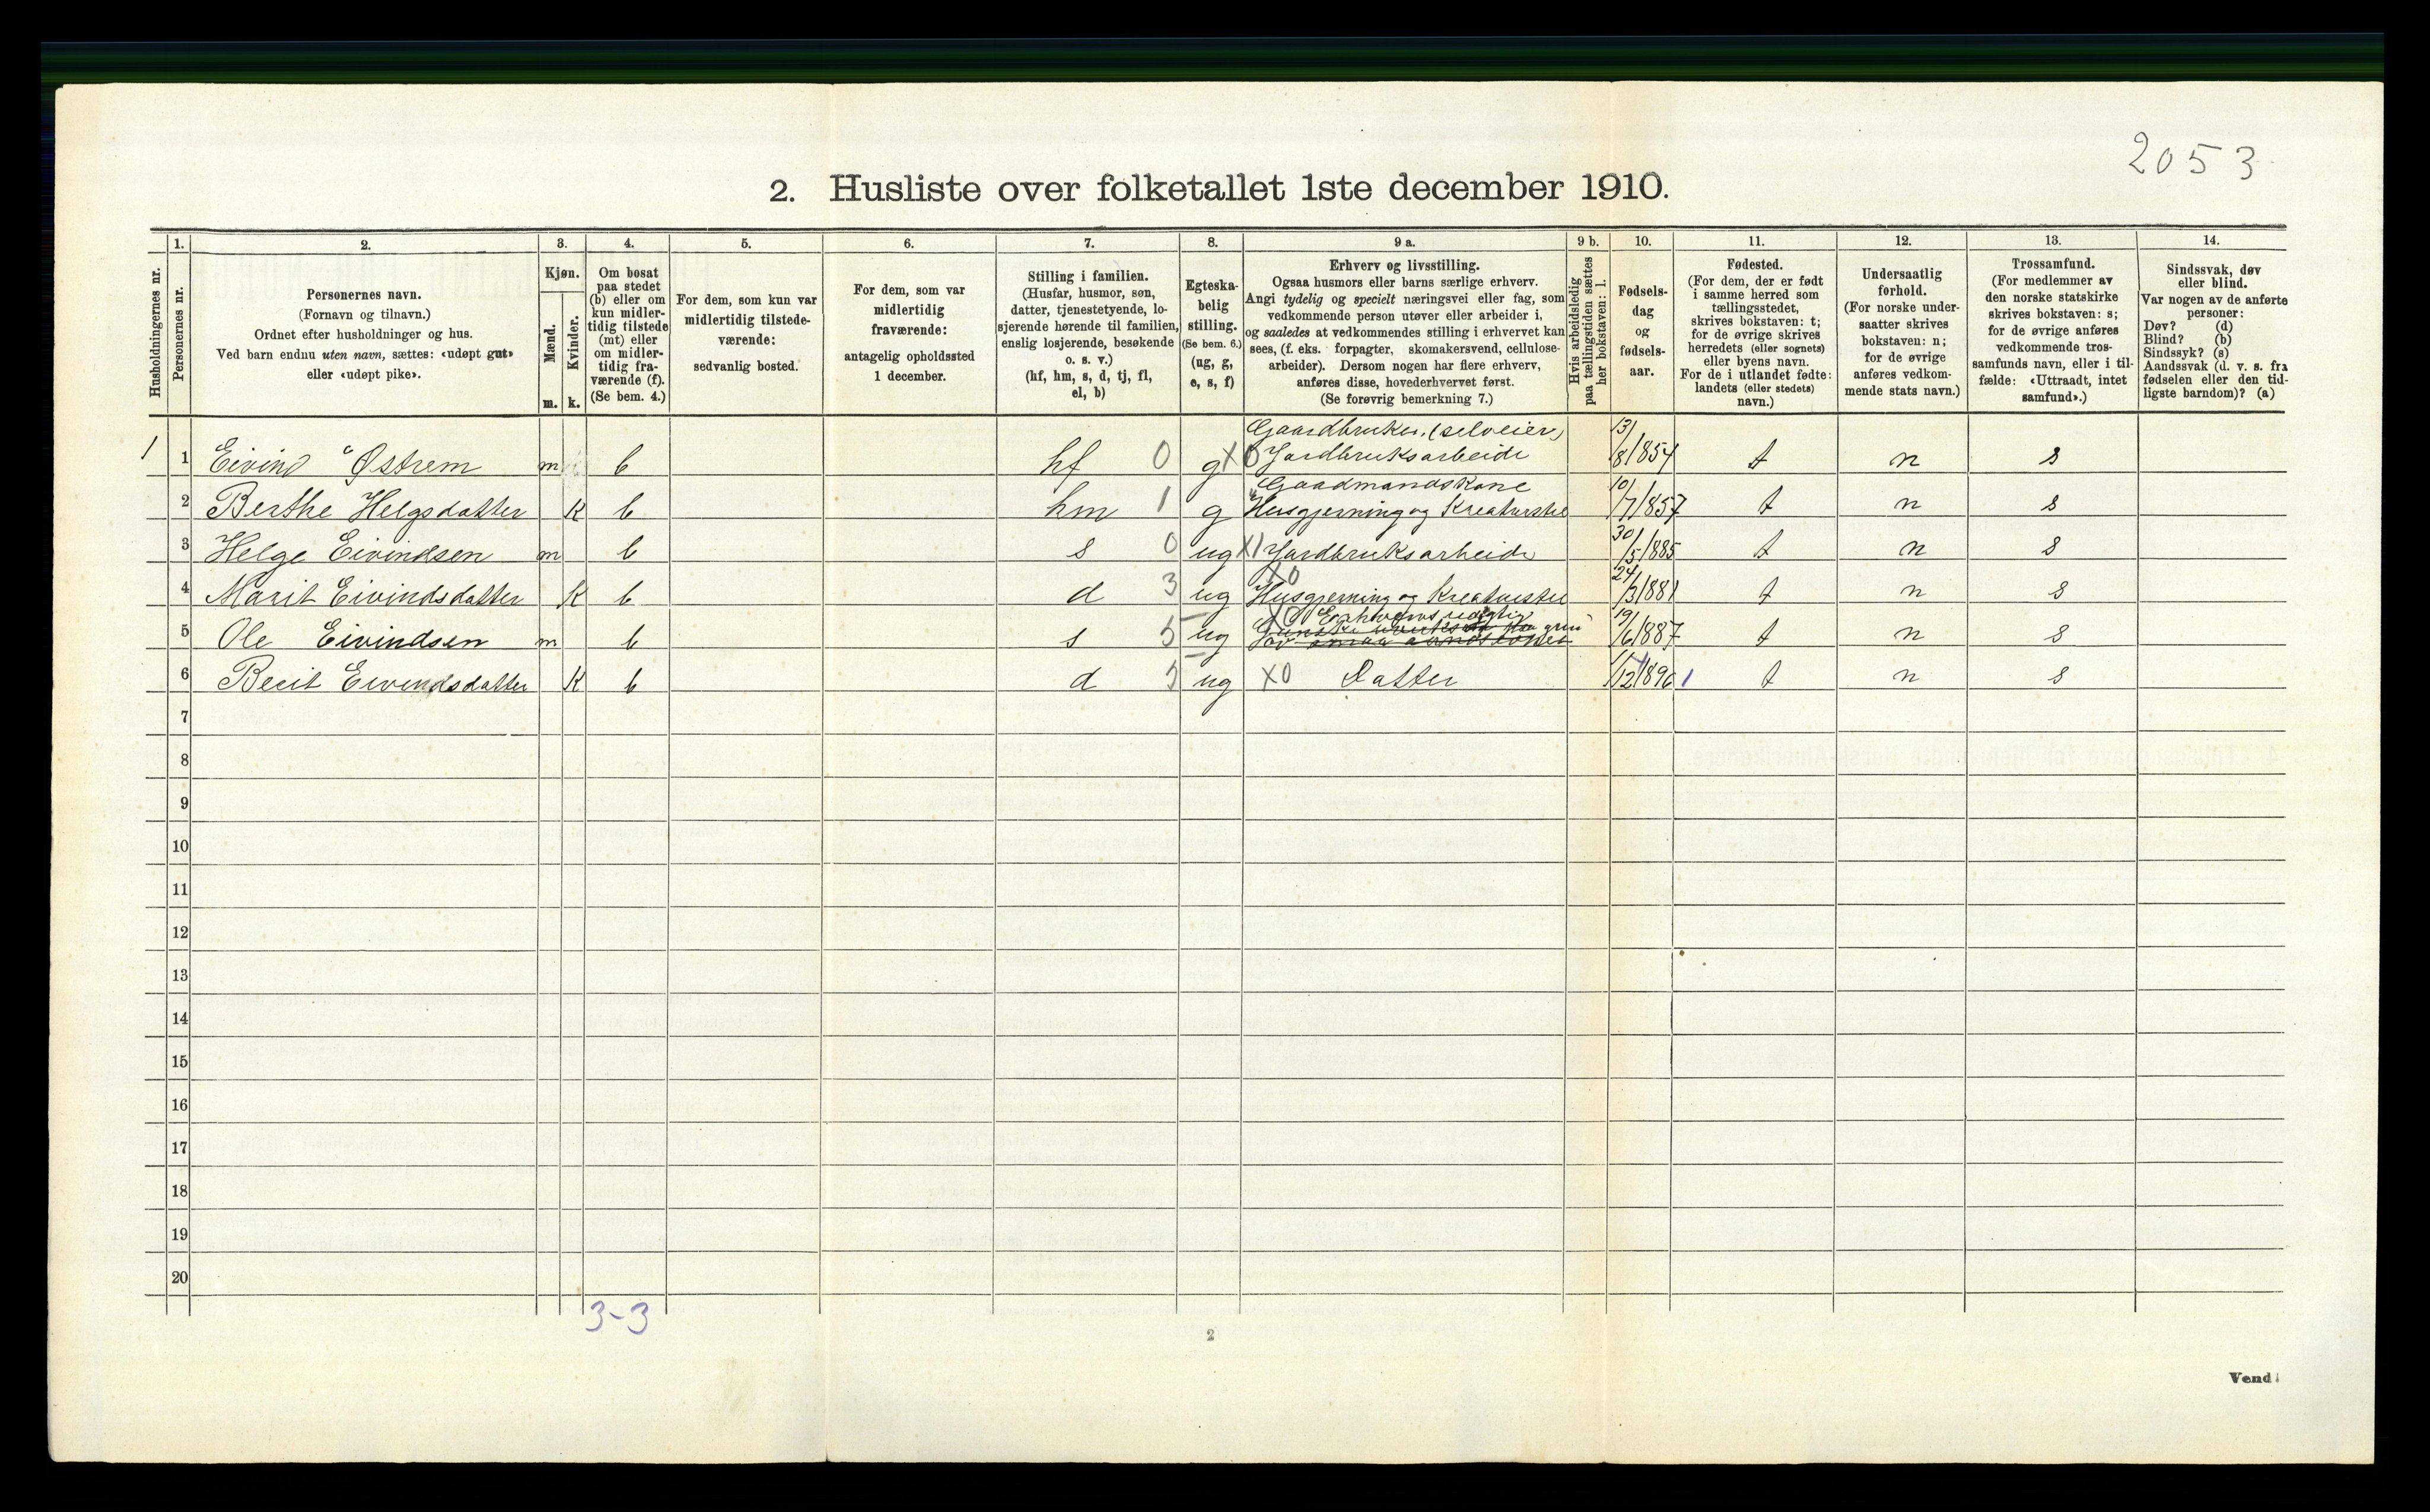 2053
2. Husliste over folketallet 1ste december 1910.
Husholdningernes nr.
1.
Personernes nr.
2.
Personernes navn.
(Fornavn og tilnavn.)
Ordnet efter husholdninger og hus.
Ved barn endnu uten navn, sættes: «udøpt gut»
eller «udøpt pike».
3.
Kjøn.
Mænd.
Kvinder.
m. k.
4.
Om bosat
paa stedet
(b) eller om
kun midler-
tidig tilstede
(mt) eller
om midler-
tidig fra-
værende (f).
(Se bem. 4.)
5.
For dem, som kun var
midlertidig tilstede-
værende:
sedvanlig bosted.
6.
For dem, som var
midlertidig
fraværende:
antagelig opholdssted
1 december.
7.
Stilling i familien.
(Husfar, husmor, søn,
datter, tjenestetyende, lo-
sjerende hørende til familien,
enslig losjerende, besøkende
o. s. v.)
(hf, hm, s, d, tj, fl,
el, b)
8.
Egteska-
belig
stilling.
(Se bem. 6.)
(ug, g,
e, s, f)
9 a.
Erhverv og livsstilling.
Ogsaa husmors eller barns særlige erhverv.
Angi tydelig og specielt næringsvei eller fag, som
vedkommende person utøver eller arbeider i,
og saaledes at vedkommendes stilling i erhvervet kan
sees, (f. eks. forpagter, skomakersvend, cellulose-
arbeider). Dersom nogen har flere erhverv,
anføres disse, hovederhvervet først.
(Se forøvrig bemerkning 7.)
9 b.
Hvis arbeidsledig
paa tællingstiden sættes
her bokstaven: l.
10.
Fødsels-
dag
og
fødsels-
aar.
11.
Fødested.
(For dem, der er født
i samme herred som
tællingsstedet,
skrives bokstaven: t;
for de øvrige skrives
herredets (eller sognets)
eller byens navn.
For de i utlandet fødte:
landets (eller stedets)
navn.)
12.
Undersaatlig
forhold.
(For norske under-
saatter skrives
bokstaven: n;
for de øvrige
anføres vedkom-
mende stats navn.)
13.
Trossamfund.
(For medlemmer av
den norske statskirke
skrives bokstaven: s;
for de øvrige anføres
vedkommende tros-
samfunds navn, eller i til-
fælde: «Uttraadt, intet
samfund».)
14.
Sindssvak, døv
eller blind.
Var nogen av de anførte
personer:
Døv? (d)
Blind? (b)
Sindssyk? (s)
Aandssvak (d. v. s. fra
fødselen eller den tid-
ligste barndom)? (a)
1 1 Eivind Østrem m b hf 0 g X0 Gaardbruker, (selveier) Jordbruksarbeide 13/8/854 t n s
2 Berthe Helgsdatter K b hm 1 g Gaadmandskone Husgjerning og Kreaturstel 10/7/857 t n s
3 Helge Eivindsen m b s 0 ug X1 Jordbruksarbeide 30/5/885 t n s
4 Marit Eivindsdatter K b d 3 ug X0 Husgjerning og Kreaturstel 24/3/881 t n s
5 Ole Eivindsen m b s 5 ug X0 Erhvervsudygtig 19/6/887 t n s
6 Berit Eivindsdatter K b d 5 ug X0 Datter 1/12/896 1 t n s
7
8
9
10
11
12
13
14
15
16
17
18
19
20
3-3
2
Vend!